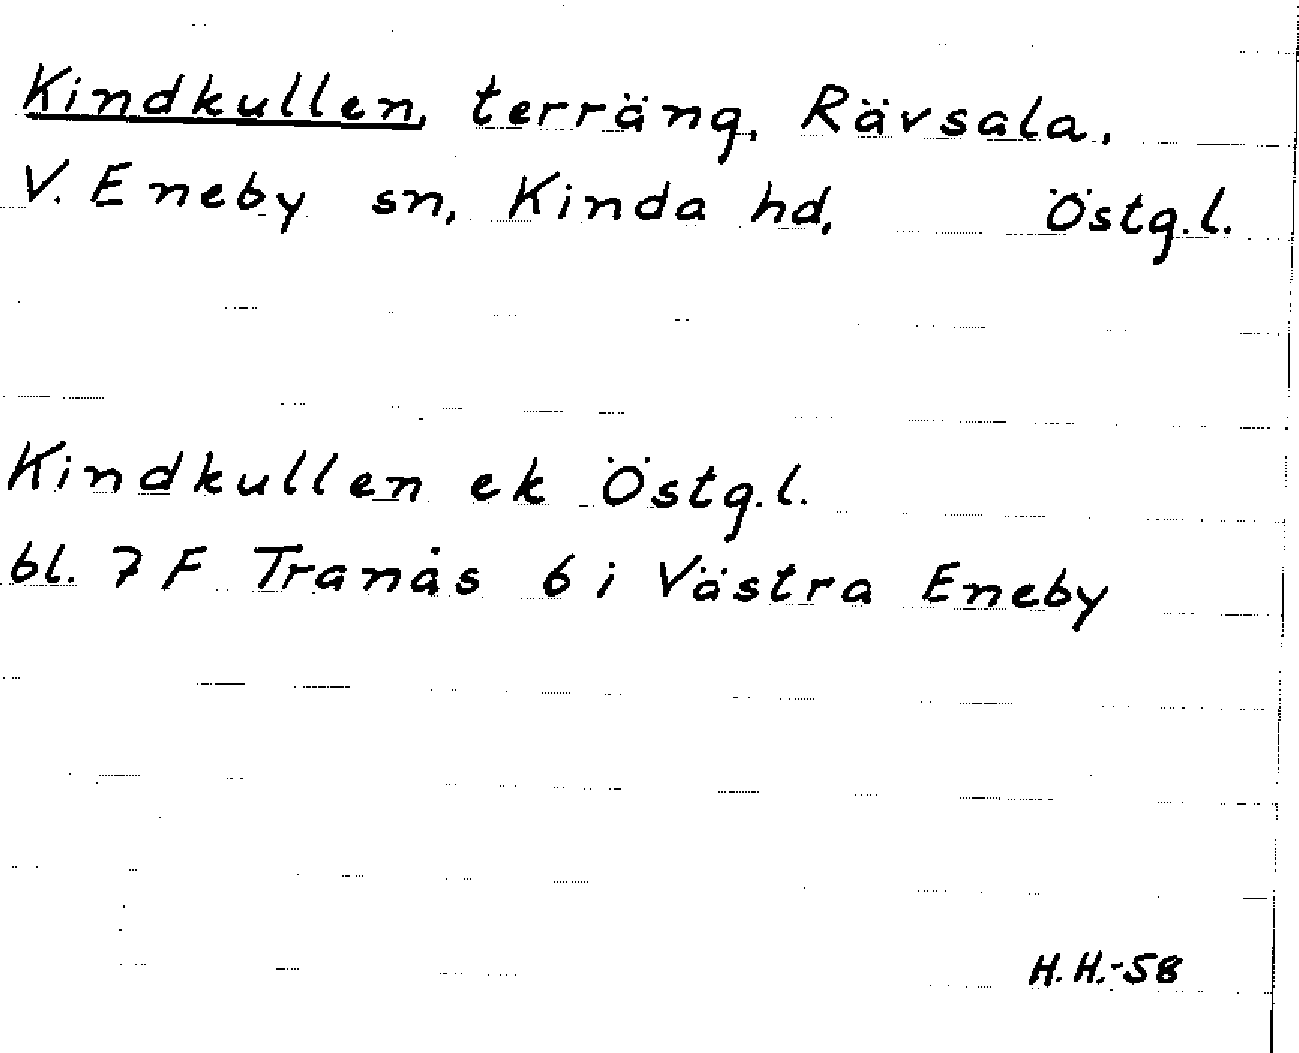 Kindkullen, terräng, Rävsala,
V. Eneby sn, Kinda hd, Östg.l.
Kindkullen ek Östg.l.
bl. 7 F Tranås 6 i Västra Eneby
H.H.-58